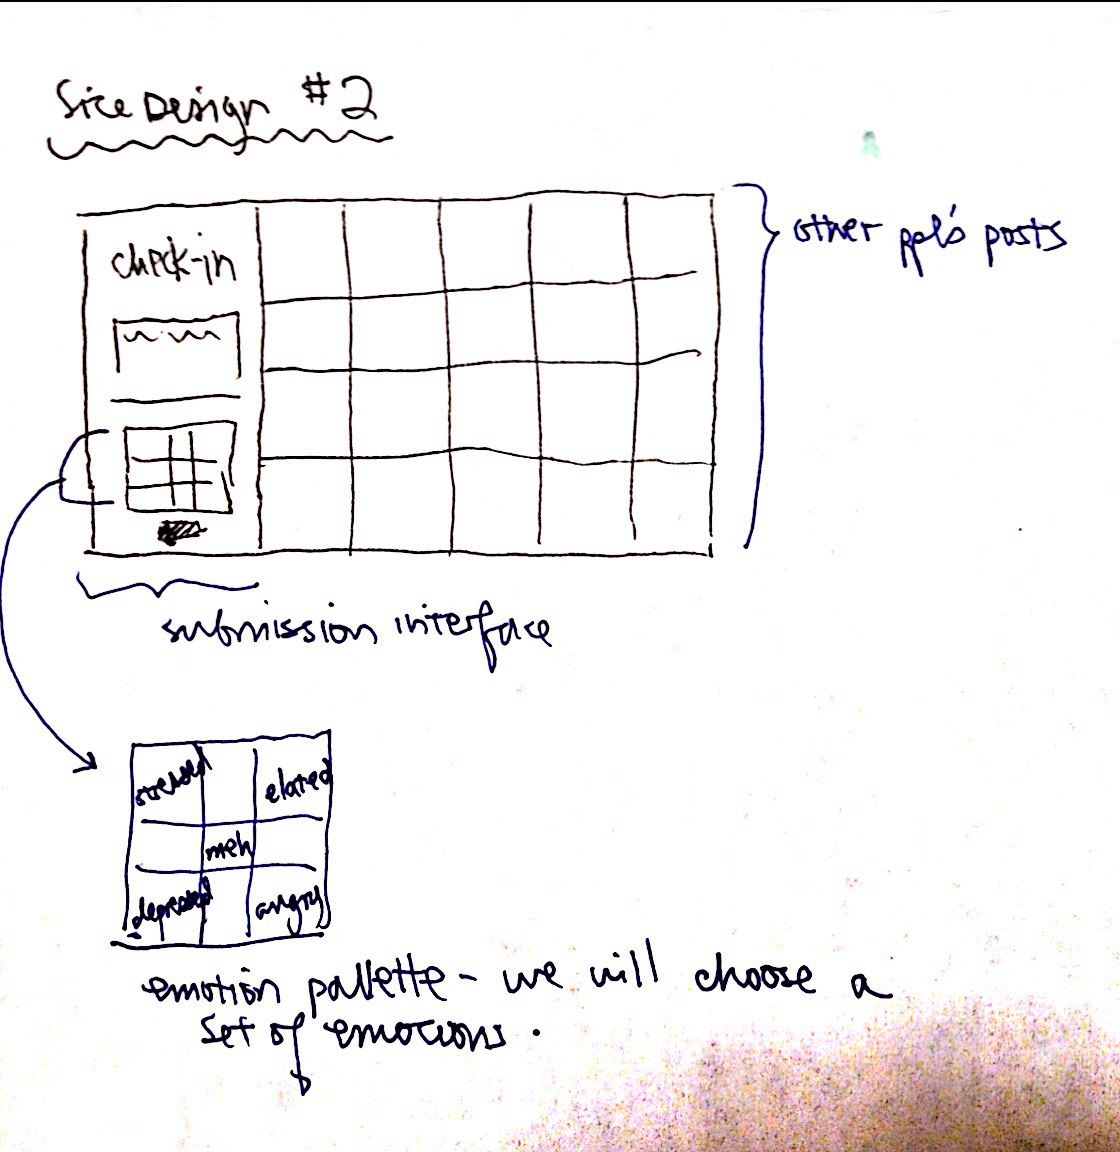 Site Design #2
check-in
other ppl's posts
submission interface
stressed
elated
meh
depressed
angry
emotion pallette - we will choose a
set of emotions.